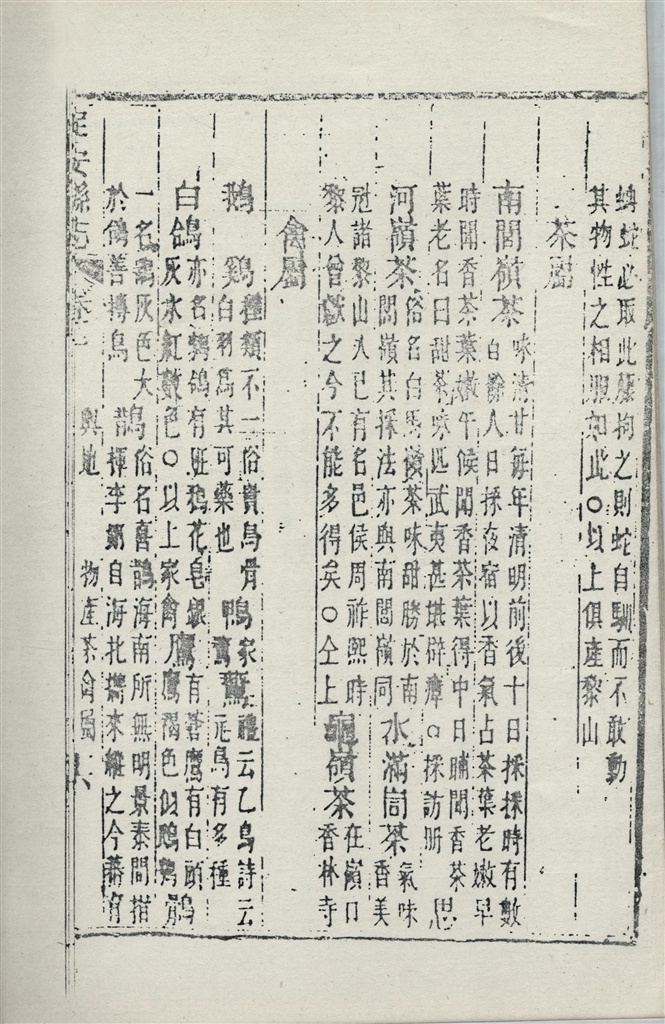 蜱蛇必取此藤拘之則蛇自馴而不敢動
其物性之相服如此〇以上俱產黎山
茶屬
南閭嶺茶味清甘每年清明前後十日採採時有數
百餘人日採夜宿以香氣占茶葉老嫩早
時聞香茶葉嫩午候聞香茶葉得中日晡聞香茶
葉老名曰甜茶味匹武夷甚堪辟瘴〇採訪冊 思
河嶺茶俗名白馬嶺茶味甜勝於南
閭嶺其採法亦與南閭嶺同水滿峒茶氣味
香美
冠諸黎山人已有名邑侯周祚熙時
黎人曾獻之今不能多得矣〇仝上龜嶺茶在嶺口
香林寺
禽屬
鵝 鷄種類不一俗貴烏骨
白羽爲其可藥也 鴨家
鶩 鷰禮云乙鳥詩云
元鳥有多種
白鴿亦名鵓鴿有斑鴉花皂銀
灰水紅數色〇以上家禽 鷹有蒼鷹有白頭
鷹褐色似鴟
一名 灰色大 鵲俗名喜鵲海南所無明景泰間指
於鴿善搏鳥 揮李 自海北攜來縱之今蕃育
定安縣志 卷之一 輿地 物產茶禽屬 六